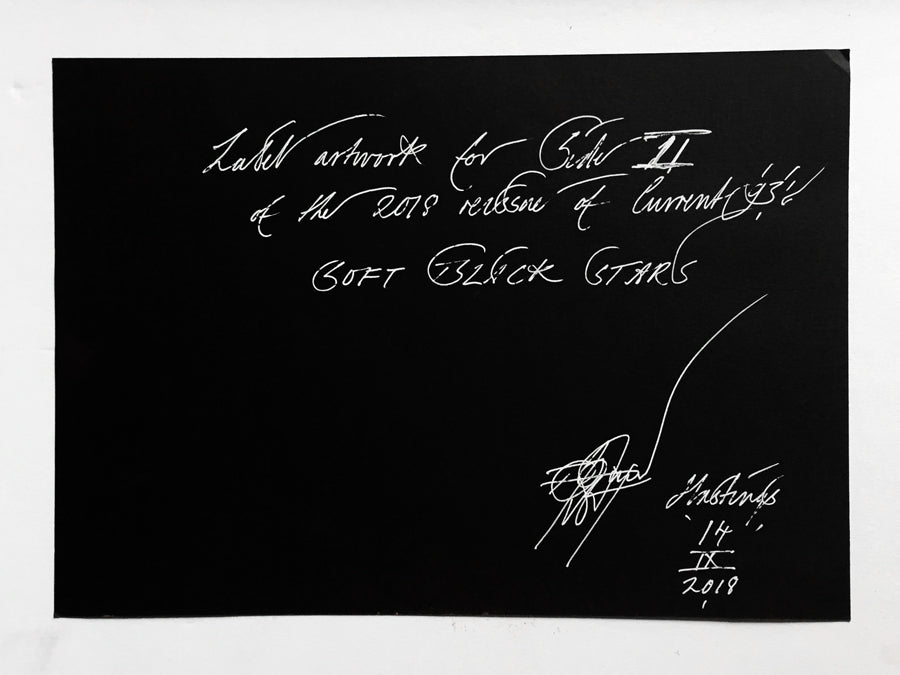 Label artwork for Side II
of the 2018 reissue of Current 93's
SOFT BLACK STARS
Hastings
14
IX
2018